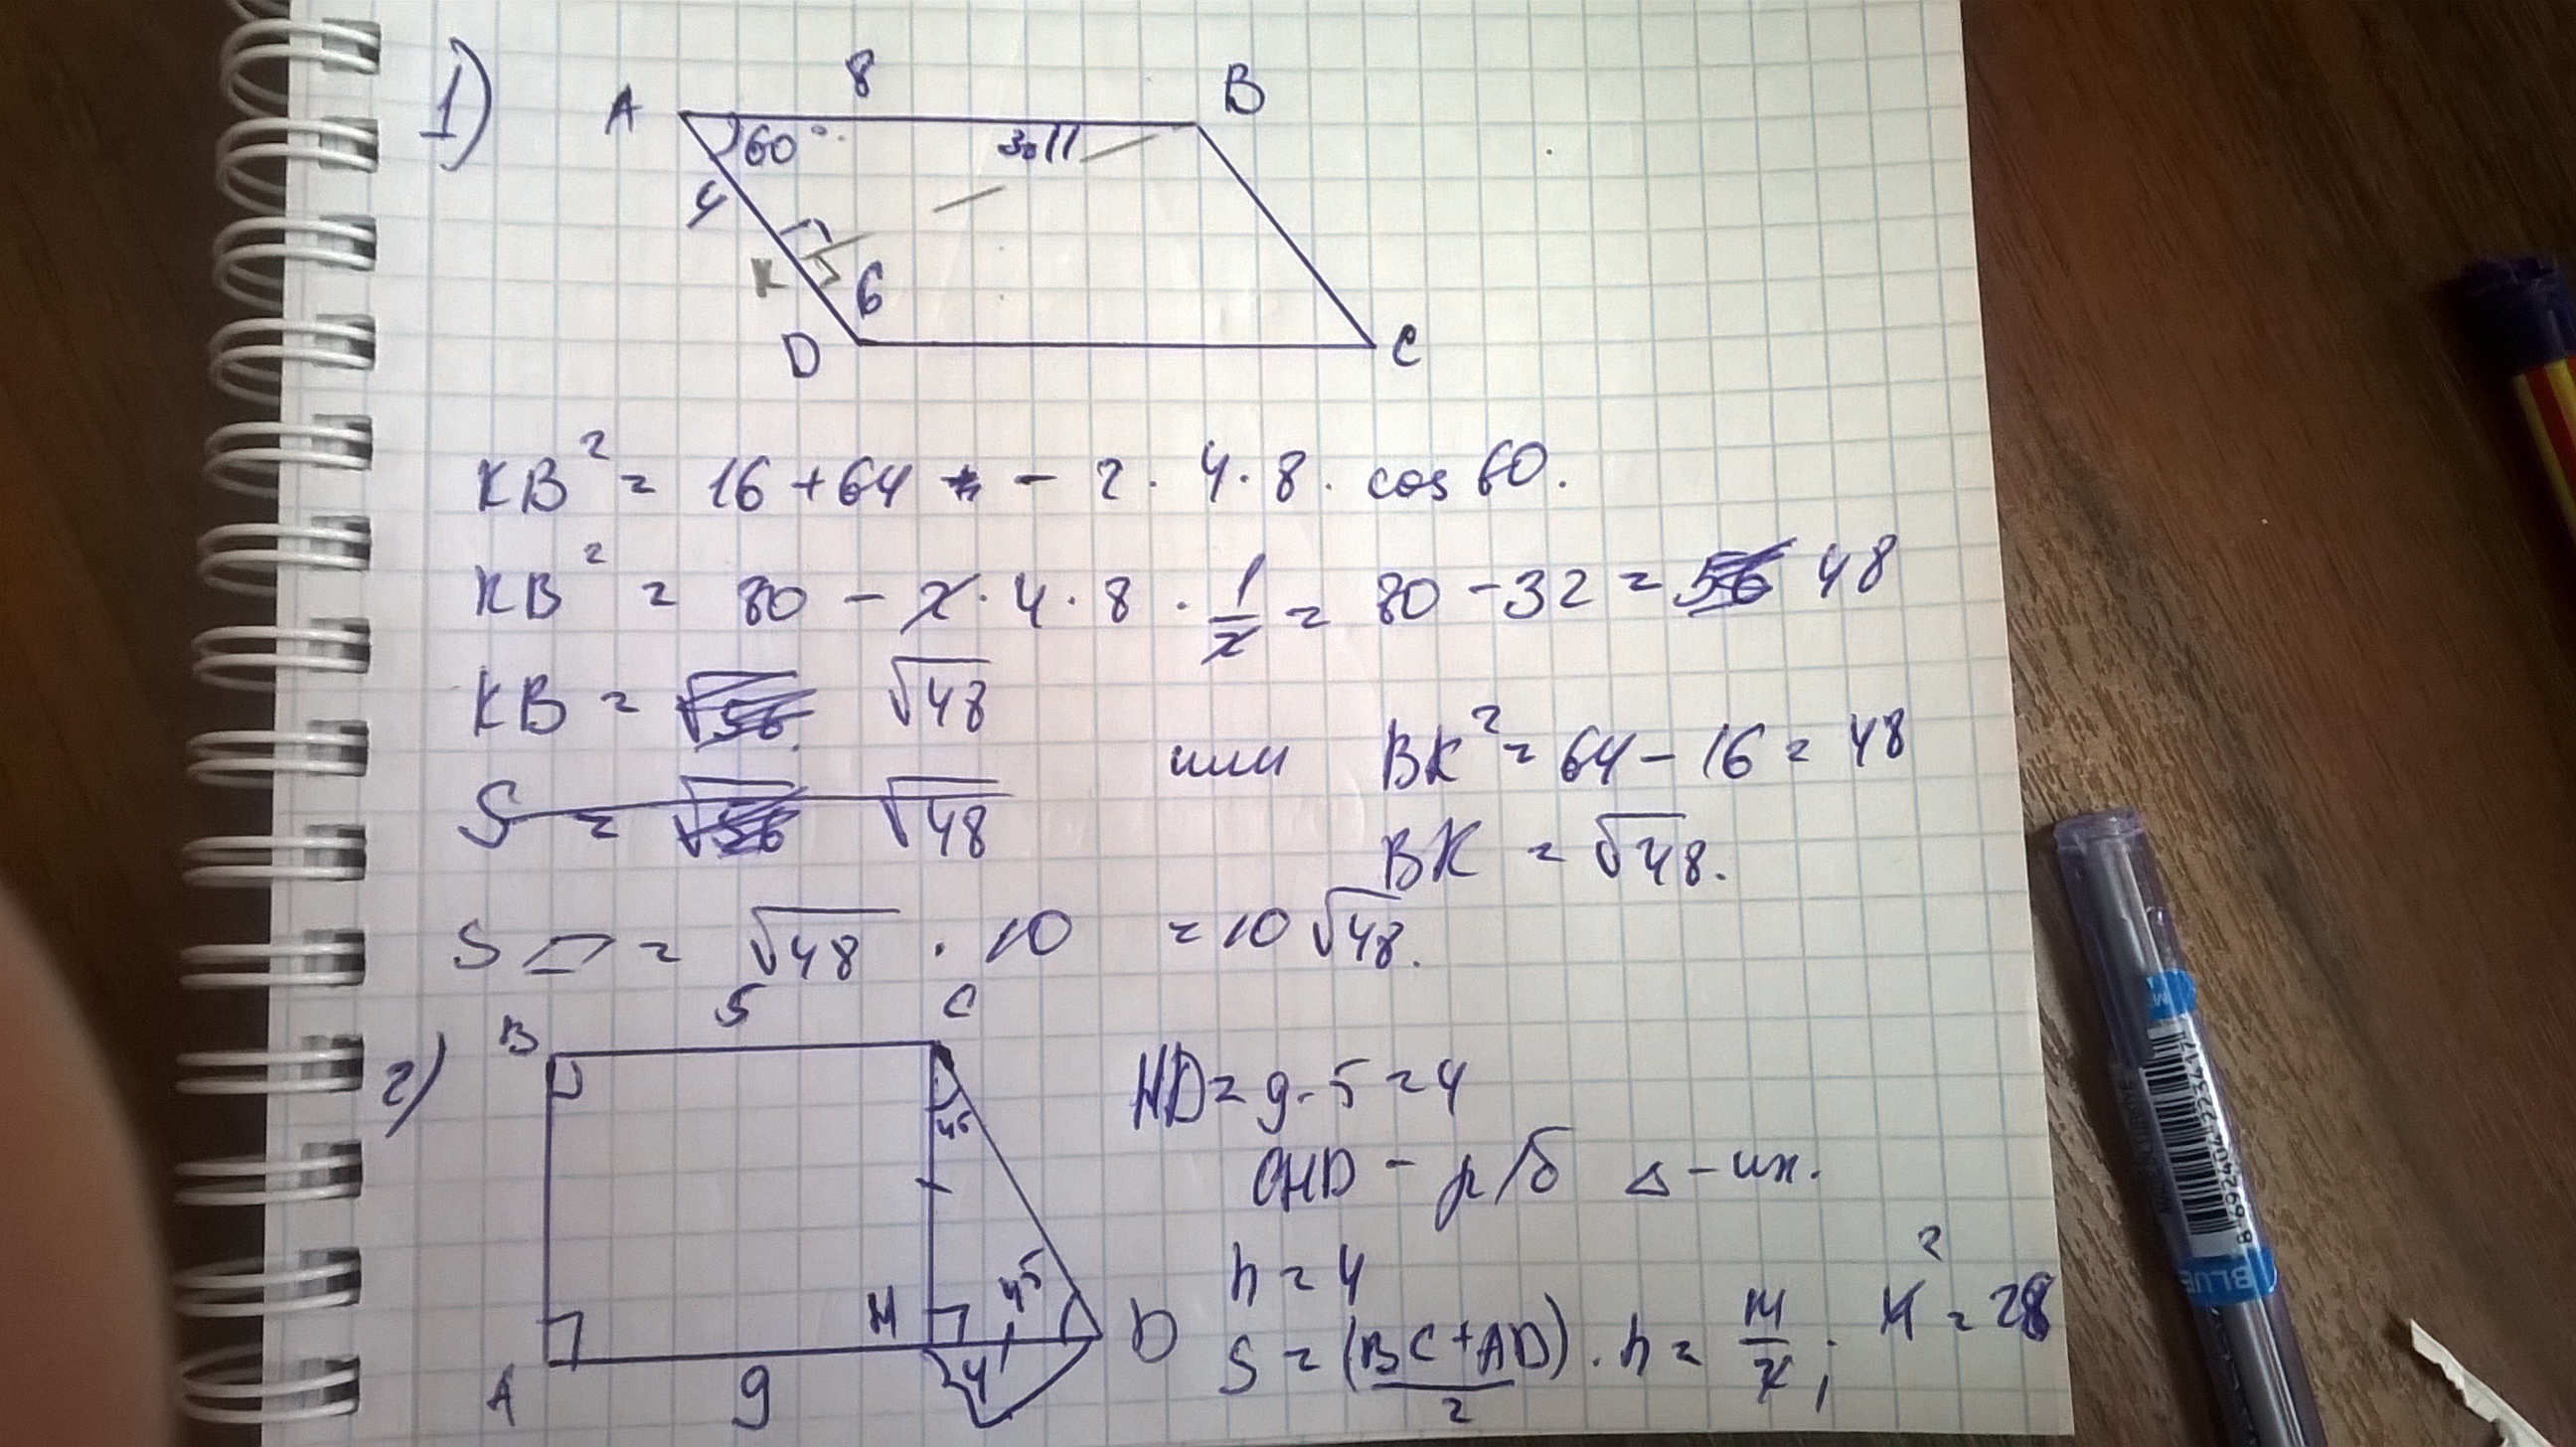 1)
A 8 B
60° 30
4
K 6
D C
KB² = 16 + 64 - 2 · 4 · 8 · cos 60.
KB² = 80 - 2 · 4 · 8 · 1/2 = 80 - 32 = 56 48
KB = √56 √48
или BK² = 64 - 16 = 48
S = √56 √48
BK = √48.
S▱ = √48 · 10 = 10√48.
2)
B 5 C
45
H 45 D
A 9 4
HD = 9 - 5 = 4
CHD - р/б Δ-ик.
h = 4
S = (BC + AD)/2 · h = 14/2 · 4 2 = 28
BLUE